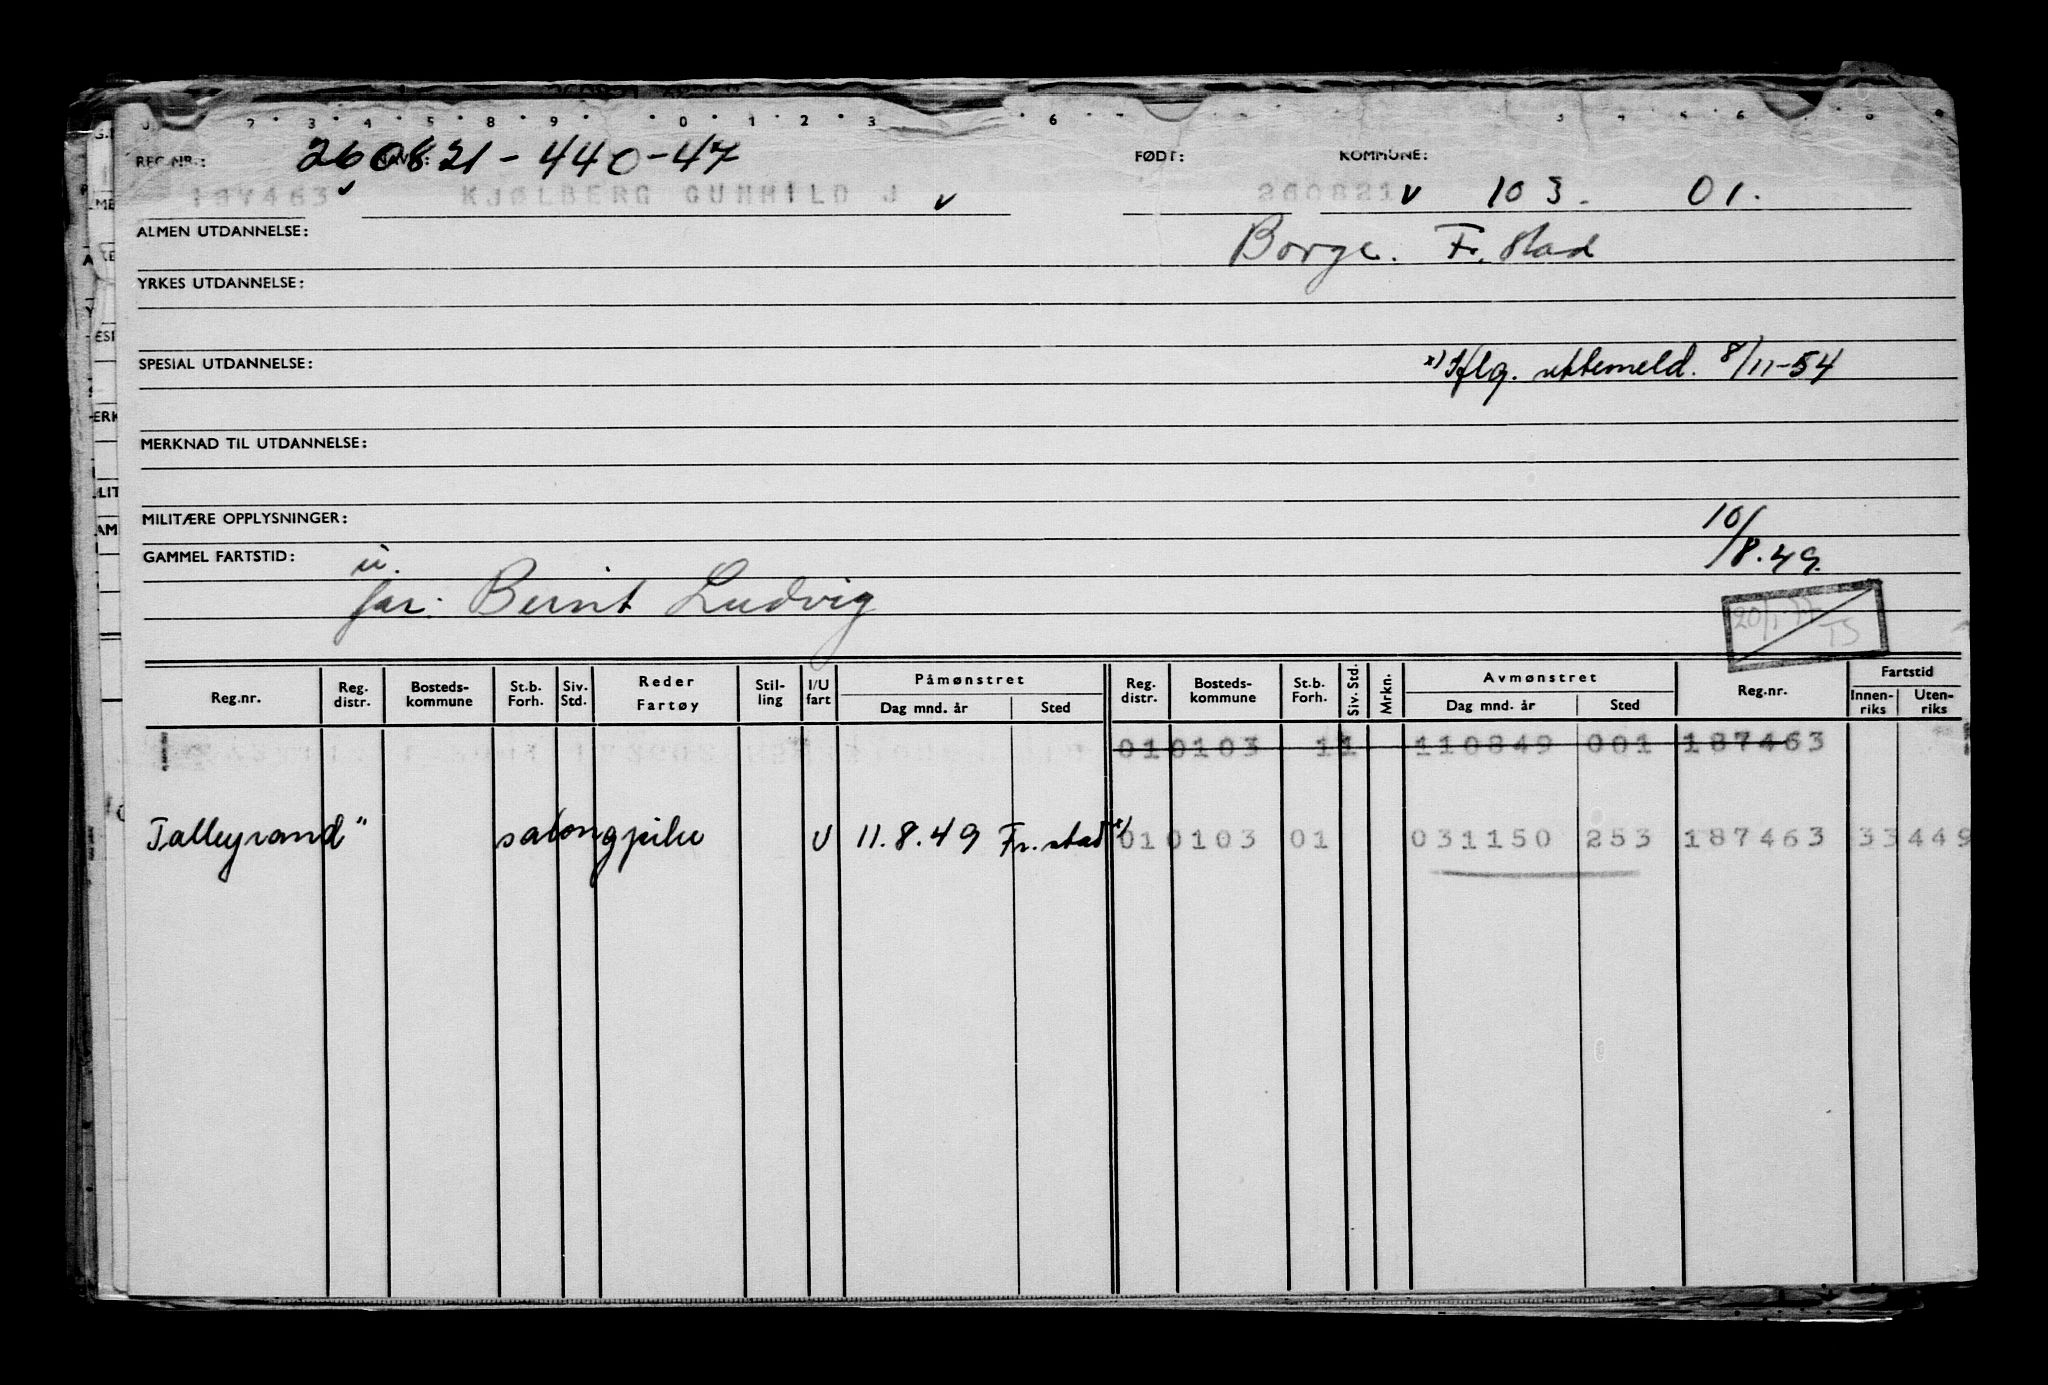 260821-440-47
REG.NR.: NAVN: FØDT: KOMMUNE:
187463 KJØLBERG GUNHILD J 260821 103. 01.
ALMEN UTDANNELSE: Borge. Fr.stad
YRKES UTDANNELSE:
SPESIAL UTDANNELSE: x) Iflg. rettemeld. 8/11-54
MERKNAD TIL UTDANNELSE:
MILITÆRE OPPLYSNINGER: 10/8.49.
GAMMEL FARTSTID: u.
far: Bernt Ludvig
20/1 TS
Reg.nr. Reg. distr. Bosteds- kommune St.b. Forh. Siv. Std. Reder Fartøy Stil- ling I/U fart Påmønstret Dag mnd. år Sted Reg. distr. Bosteds- kommune St.b. Forh. Siv. Std. Mrkn. Avmønstret Dag mnd. år Sted Reg.nr. Fartstid Innen- riks Uten- riks
01 0103 11 110849 001 187463
Talleyrand" salongpike U 11.8.49 Fr.stad x) 01 0103 01 031150 253 187463 33 449